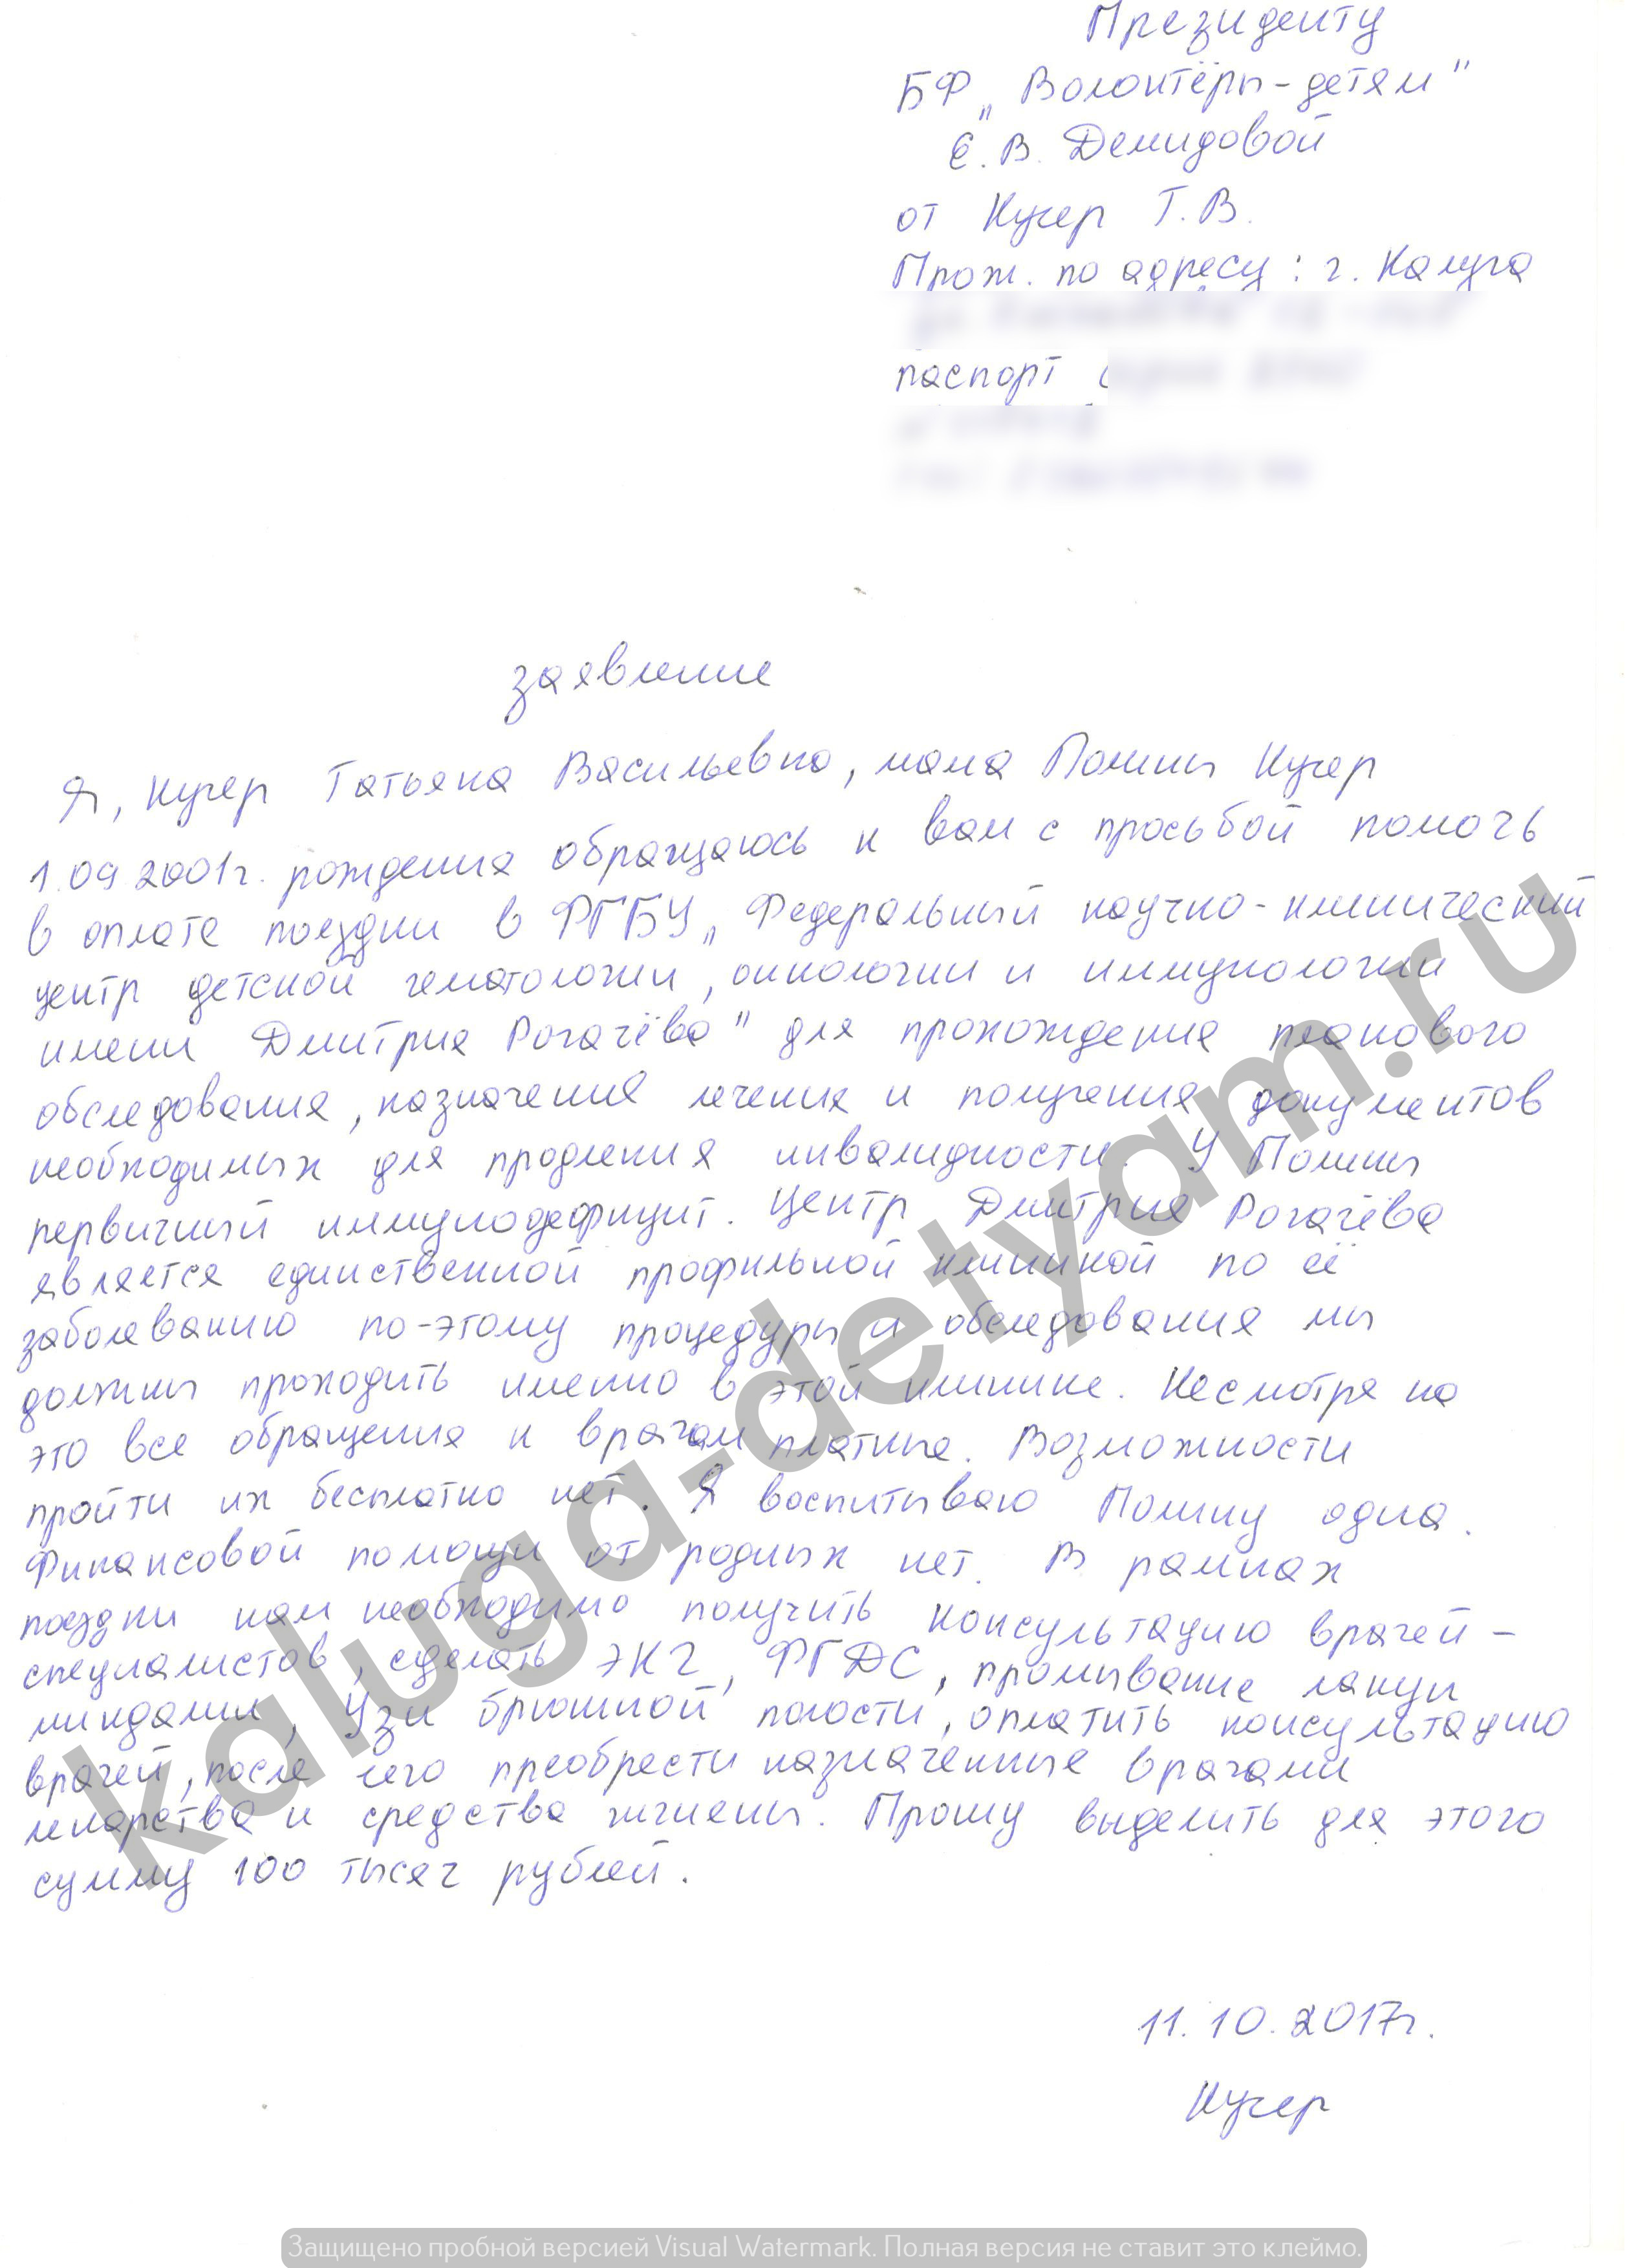 Президенту
БФ „Волонтёры-детям"
Е. В. Демидовой
от Кучер Т. В.
Прож. по адресу: г. Калуга
паспорт
заявление
Я, Кучер Татьяна Васильевна, мама Полины Кучер
1.09 2001г. рождения обращаюсь к вам с просьбой помочь
в оплате поездки в ФГБУ „Федеральный научно-клинический
центр детской гематологии, онкологии и иммунологии
имени Дмитрия Рогачёва" для прохождения планового
обследования, назначения лечения и получения документов
необходимых для продления инвалидности. У Полины
первичный иммунодефицит. Центр Дмитрия Рогачёва
является единственной профильной клиникой по её
заболеванию по-этому процедуры и обследования мы
должны проходить именно в этой клинике. Несмотря на
это все обращения к врачам платные. Возможности
пройти их бесплатно нет. Я воспитываю Полину одна.
Финансовой помощи от родных нет. В рамках
поездки нам необходимо получить консультацию врачей-
специалистов, сделать ЭКГ, ФГДС, промывание лакун
миндалин, Узи брюшной полости, оплатить консультацию
врачей, после чего преобрести назначенные врачами
лекарства и средства гигиены. Прошу выделить для этого
сумму 100 тысяч рублей.
11.10.2017г.
Кучер
kaluga-detyam.ru
Защищено пробной версией Visual Watermark. Полная версия не ставит это клеймо.